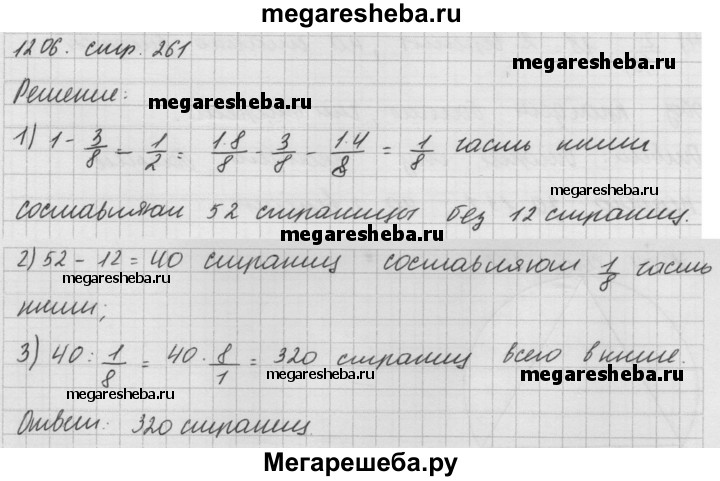 megaresheba.ru
1206. стр. 261
megaresheba.ru
Решение:
megaresheba.ru
1) 1 - 3/8 - 1/2 = 1·8/8 - 3/8 - 1·4/8 = 1/8 часть книги
составляют 52 страницы без 12 страниц.
megaresheba.ru
megaresheba.ru
2) 52 - 12 = 40 страниц составляют 1/8 часть
megaresheba.ru
megaresheba.ru
книги;
3) 40 : 1/8 = 40 · 8/1 = 320 страниц всего в книге.
megaresheba.ru
megaresheba.ru
megaresheba.ru
Ответ: 320 страниц.
megaresheba.ru
Мегарешеба.ру